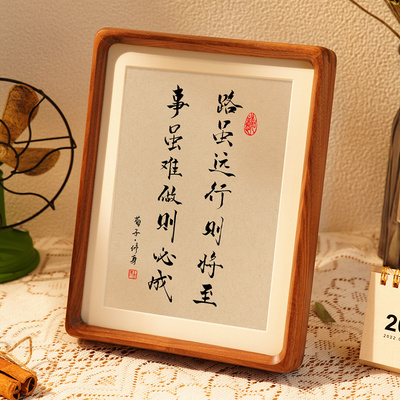 路虽远行则将至
事虽难做则必成
荀子·修身
20
2022.0